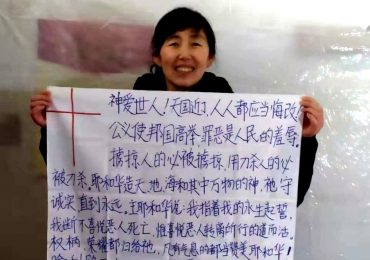 神爱世人!天国近了,人人都应当悔改
公义使邦国高举罪恶是人民的羞辱。
掳掠人的必被掳掠,用刀杀人的必
被刀杀.耶和华造天、地、海和其中万物的神,祂守
诚实直到永远。主耶和华说:我指着我的永生起誓,
我断不喜悦恶人死亡,惟喜悦恶人转离所行的道而活。
权柄、荣耀都归给祂,凡有气息的都当赞美耶和华!